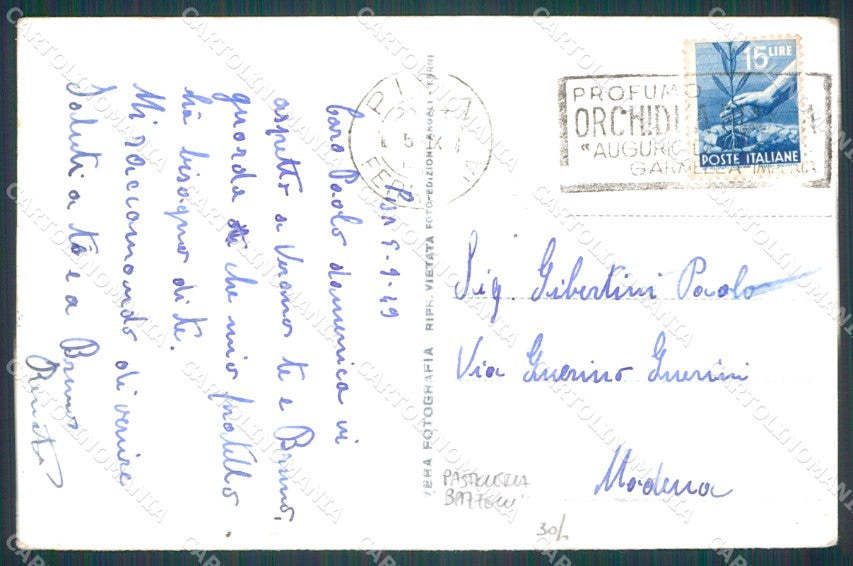 Pisa 5-9-49
Caro Paolo domenica vi
aspetto a Viramo te e Bruno,
guarda che mio fratello
ha bisogno di te.
Mi raccomando di venire
Saluti a te e a Bruno
Renato
VERA FOTOGRAFIA RIPR. VIETATA FOTO-EDIZIONI ANGELI - TERNI
PISA
5 IX
FERROVIA
PROFUMO
ORCHIDEA
"AUGURIO
GARNELEA-IMPERIA
15 LIRE
POSTE ITALIANE
Sig. Gibertini Paolo
Via Guerino Guerini
Modena
PASTICCERIA
BAZZONI
30/